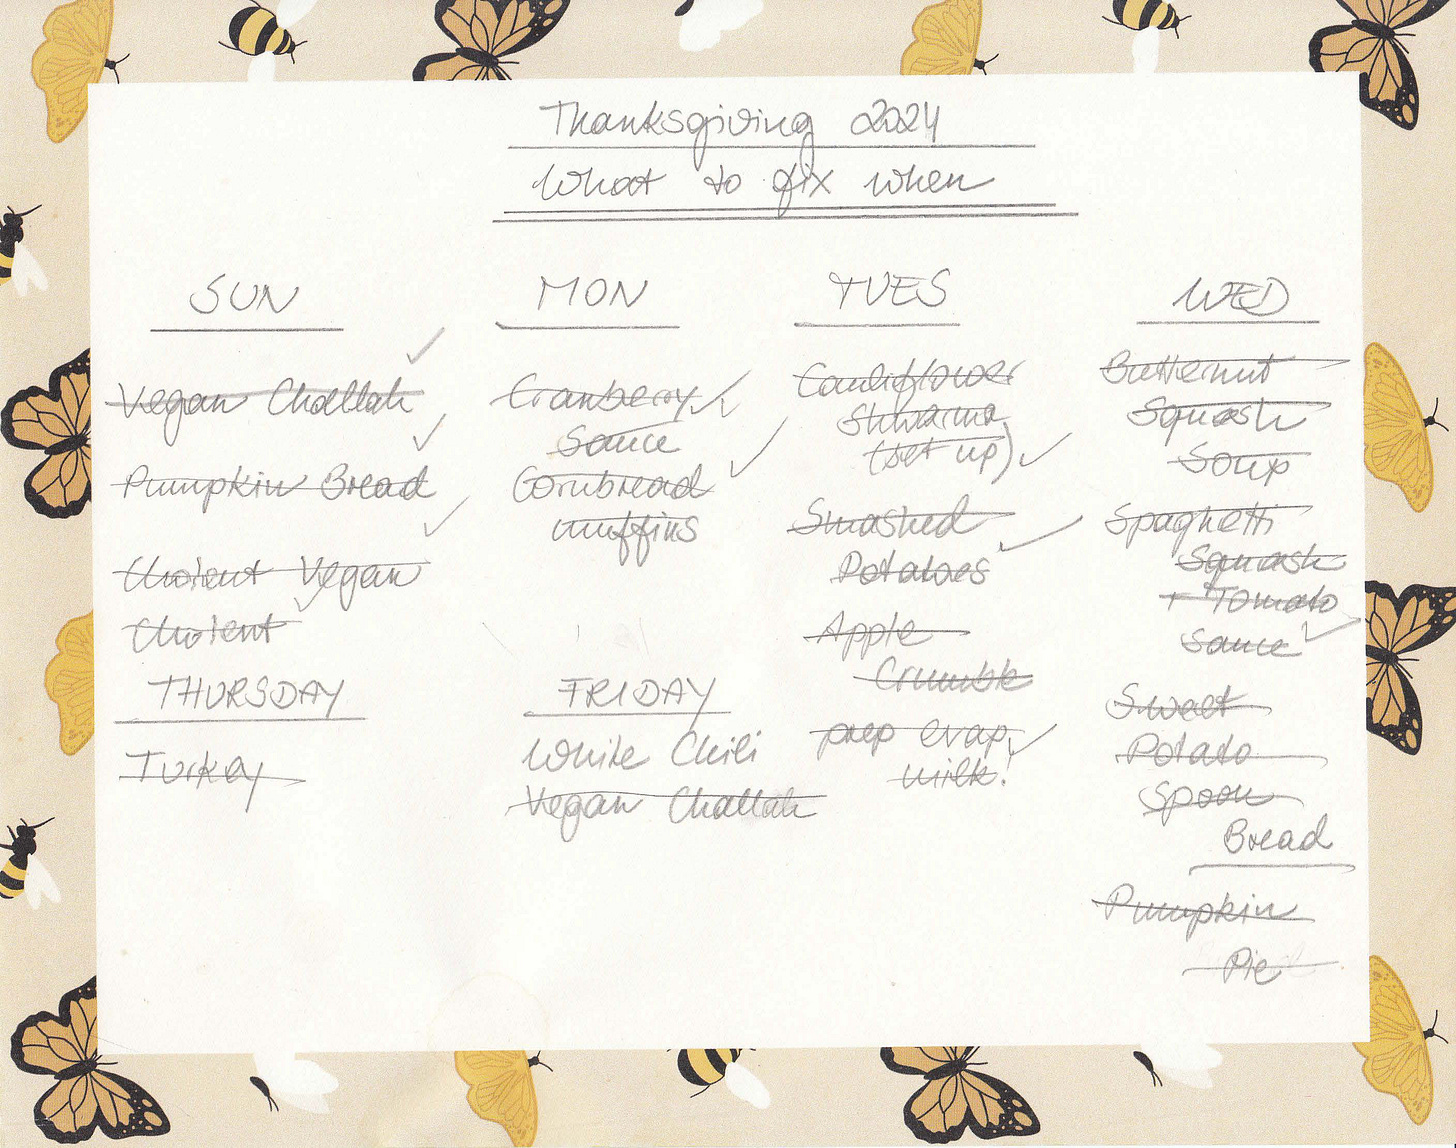 Thanksgiving 2024
What to fix when
SUN
Vegan Challah
Pumpkin Bread
Cholent Vegan
Cholent
MON
Cranberry
Sauce
Cornbread
muffins
TUES
Cauliflower
Shwarma
(set up)
Smashed
Potatoes
Apple
Crumble
prep evap.
milk!
WED
Butternut
Squash
Soup
Spaghetti
Squash
+ Tomato
Sauce
Sweet
Potato
Spoon
Bread
Pumpkin
Pie
THURSDAY
Turkey
FRIDAY
White Chili
Vegan Challah